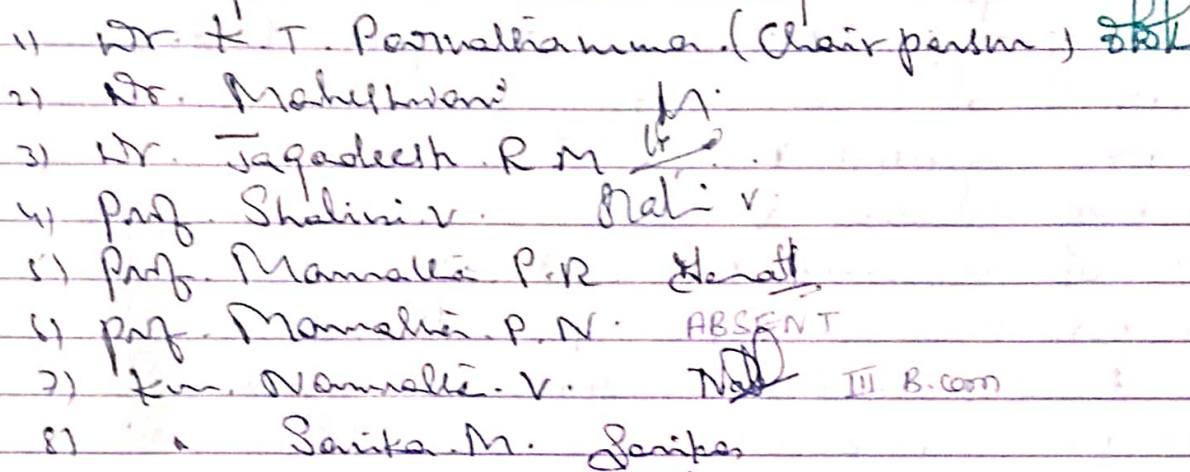 1) Dr. K. T. Parvathamma. (Chairperson)
2) Dr. Maheshwari M.
3) Dr. Jagadeesh R M
4) Prof. Shalini. V. Shalini V
5) Prof. Mamatha P. R
6) Prof. Mamatha. P. N. ABSENT
7) Km. Namratha. V. III B.com
8) " Sarika. M. Sarika